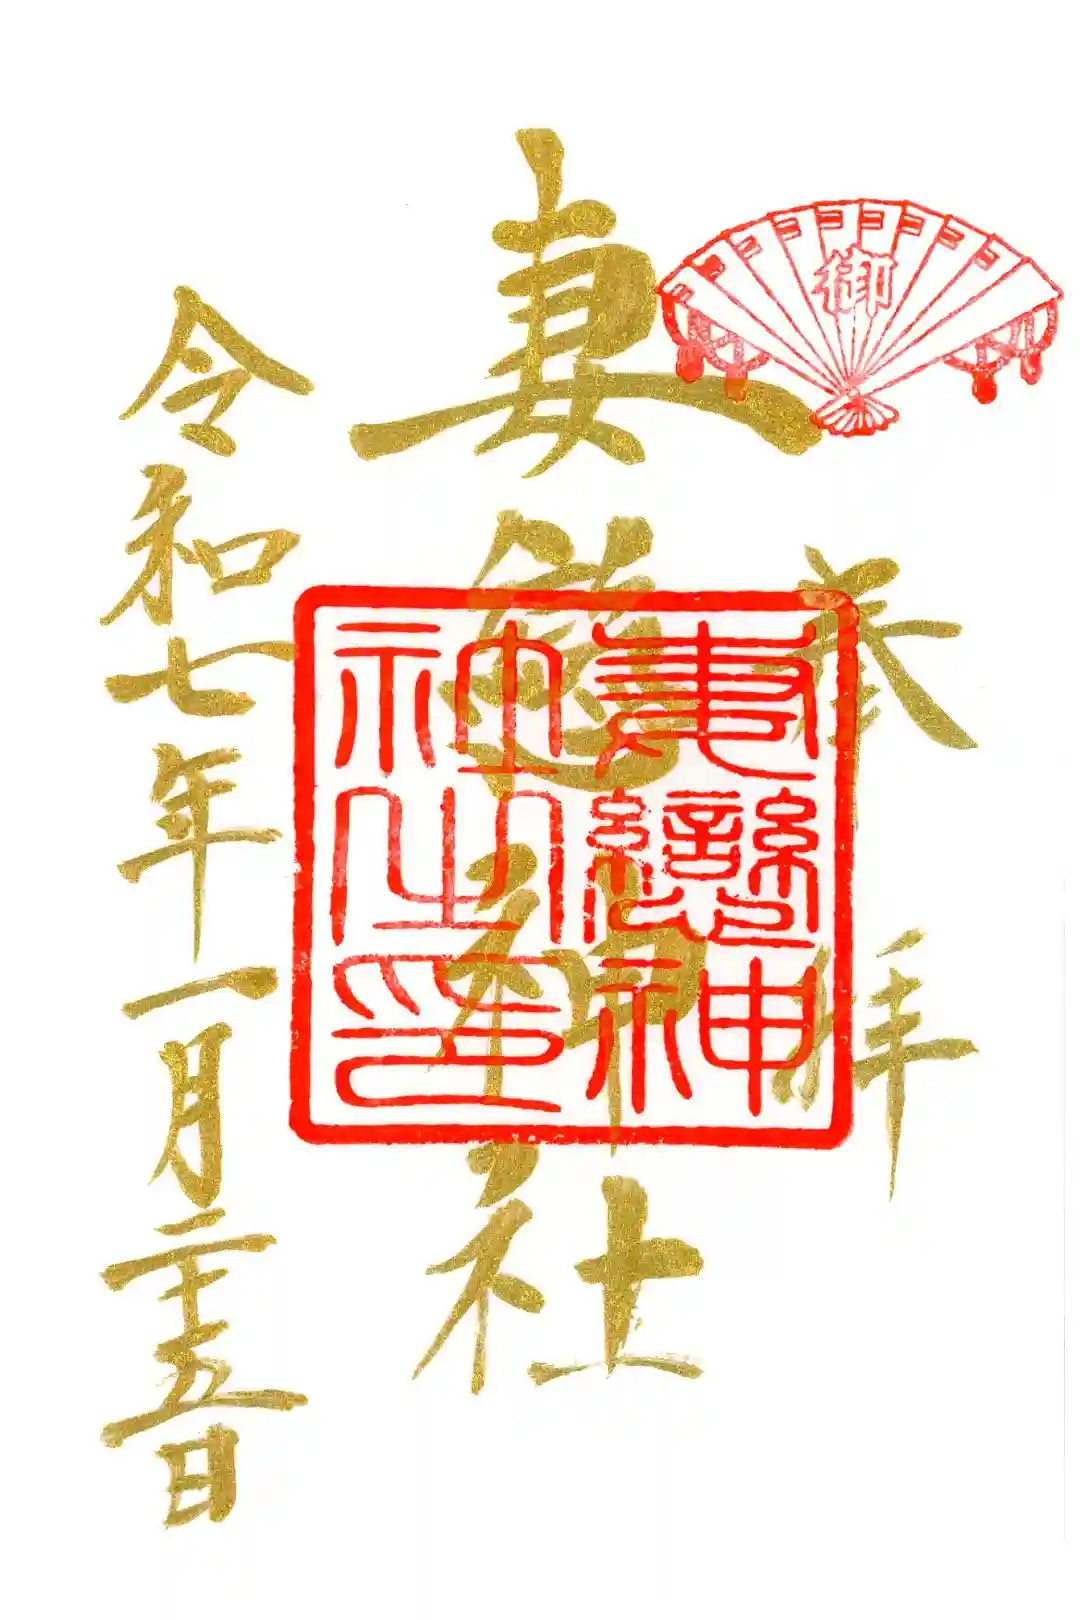 御
奉拝
妻戀神社
妻戀神
社之印
令和七年一月二十五日